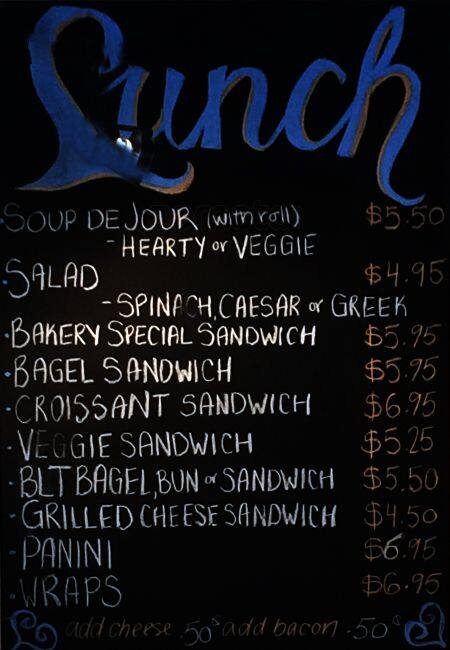 Lunch
SOUP DE JOUR (with roll) $5.50
- HEARTY or VEGGIE
SALAD $4.95
- SPINACH, CAESAR or GREEK
BAKERY SPECIAL SANDWICH $5.95
BAGEL SANDWICH $5.75
CROISSANT SANDWICH $6.95
VEGGIE SANDWICH $5.25
BLT BAGEL, BUN or SANDWICH $5.50
GRILLED CHEESE SANDWICH $4.50
PANINI $6.95
WRAPS $6.95
add cheese .50¢ add bacon .50¢